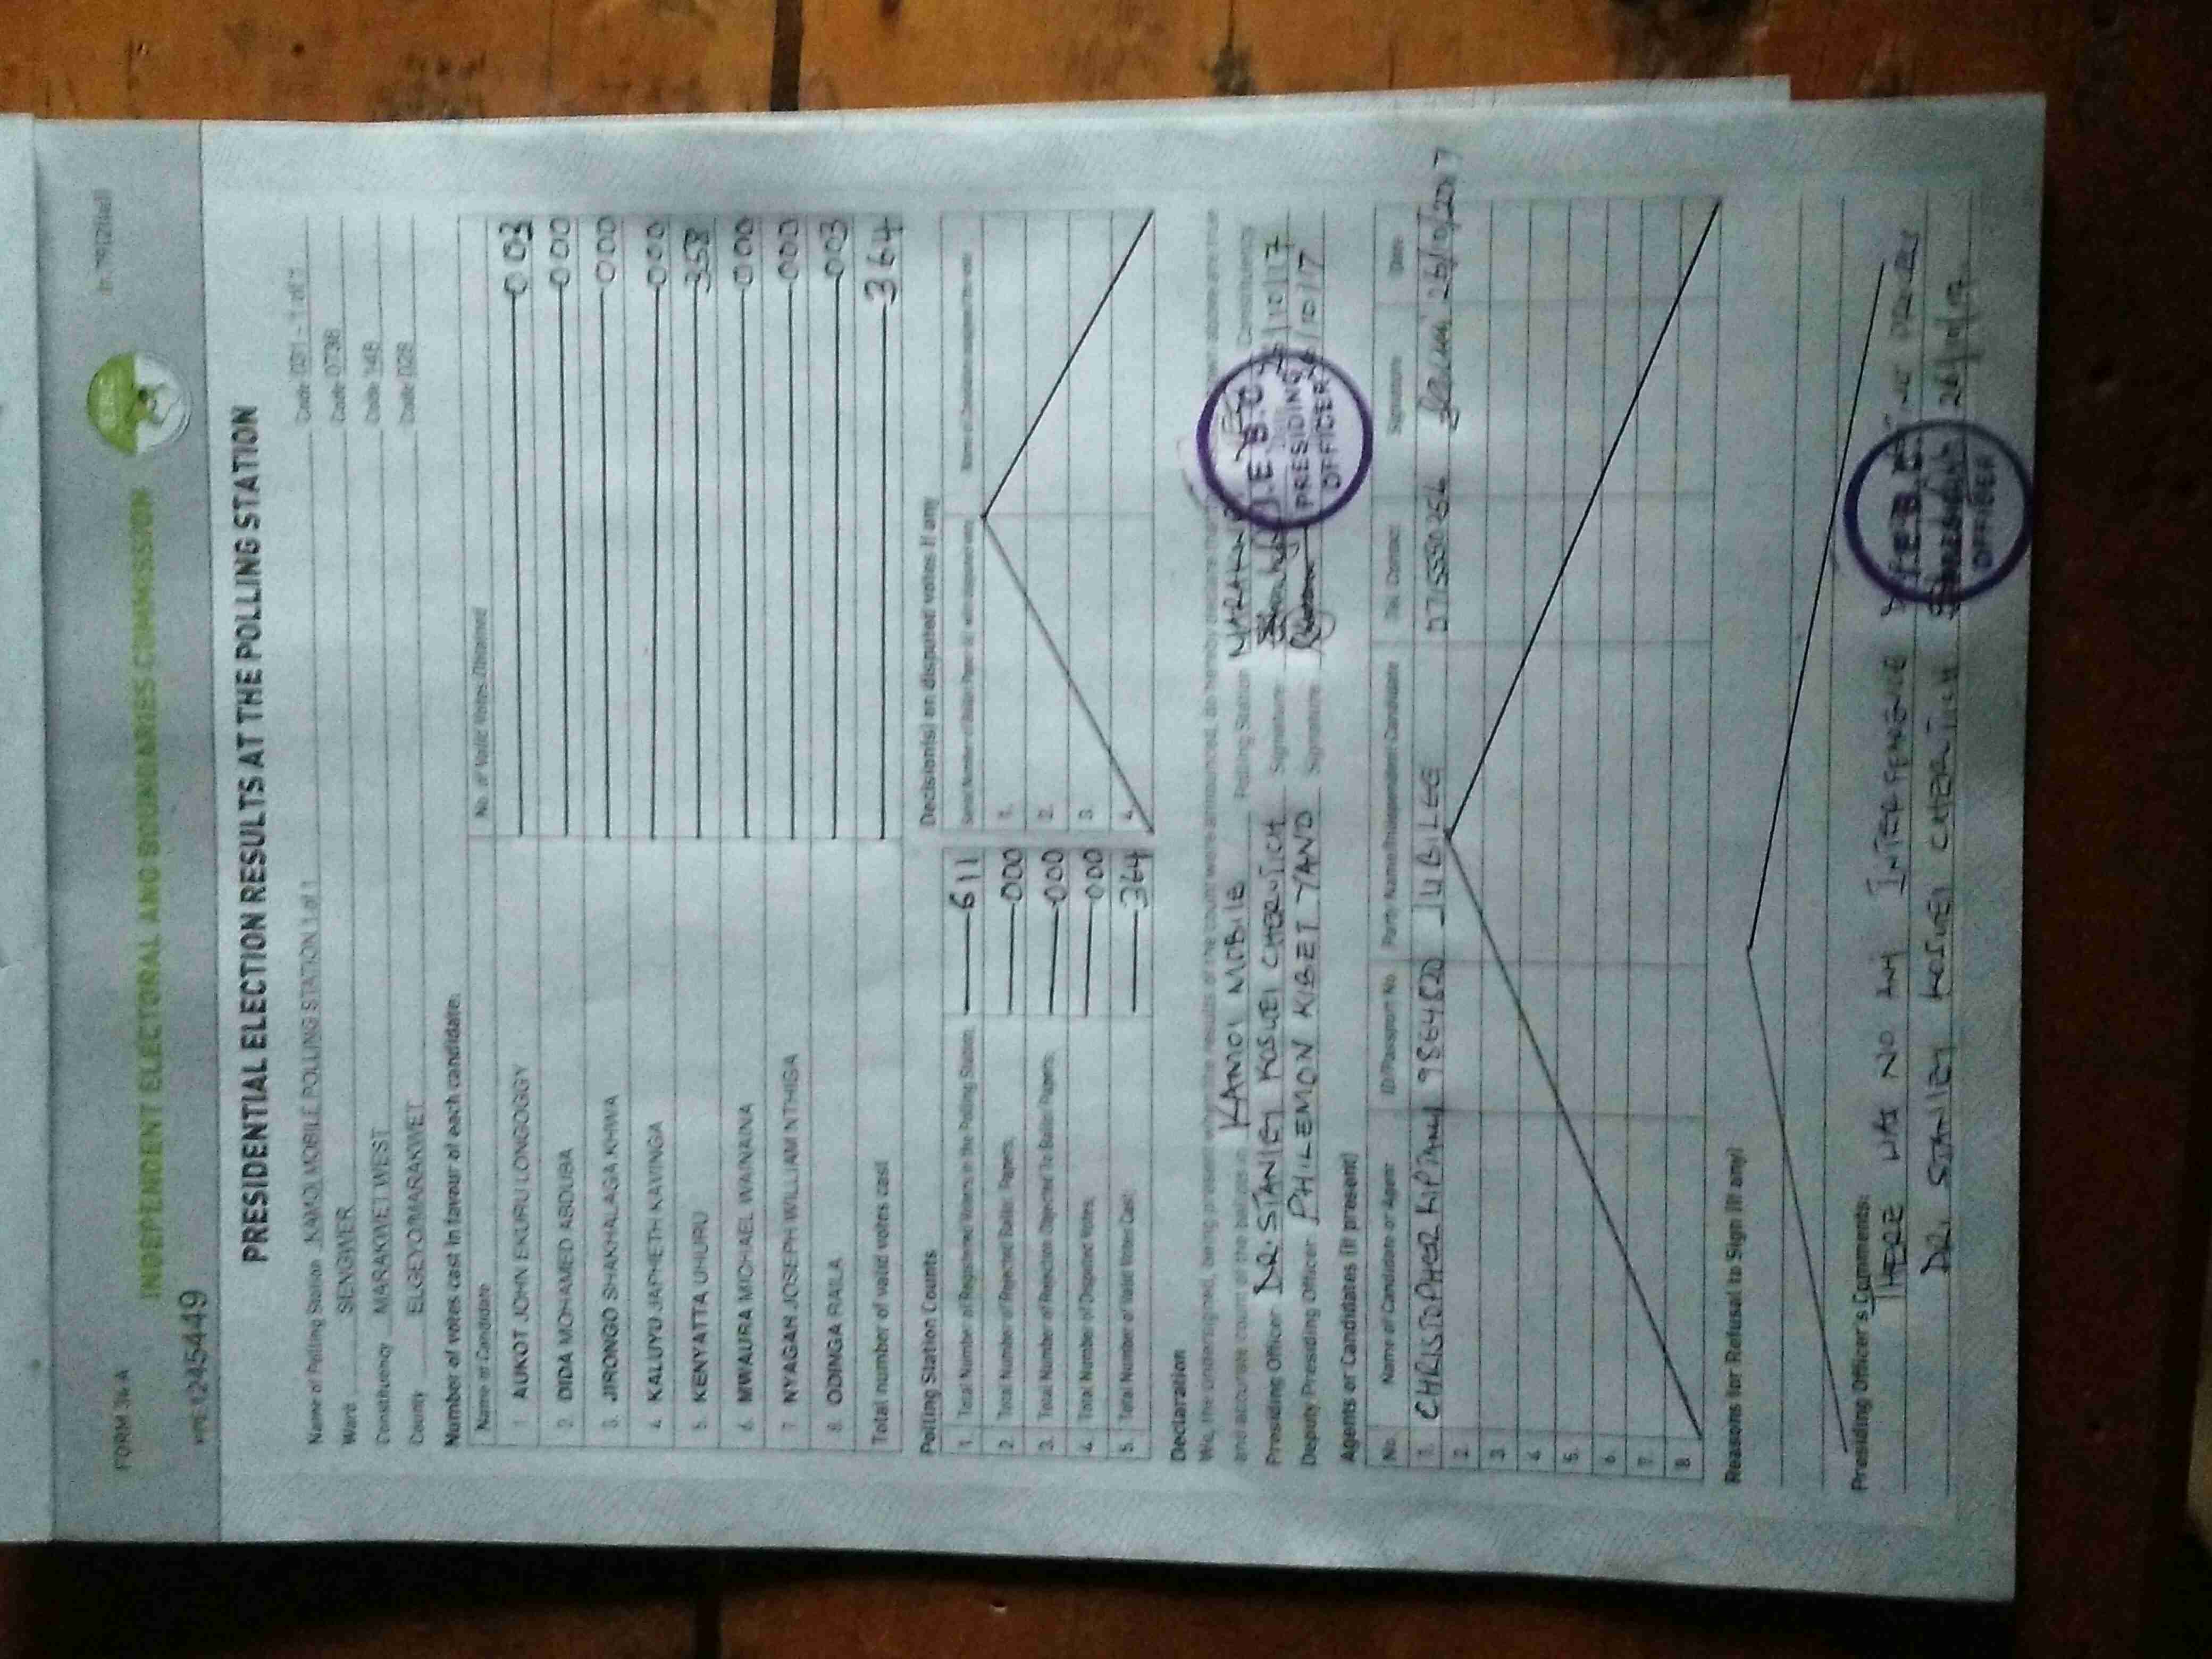 FORM 34A
INDEPENDENT ELECTORAL AND BOUNDARIES COMMISSION
1245449
PRESIDENTIAL ELECTION RESULTS AT THE POLLING STATION
Name of Polling Station KAMOI MOBILE POLLING STATION 1 of 1 Code 1 of 1
Ward SENGWER Code 0736
Constituency MARAKWET WEST Code 148
County ELGEYO/MARAKWET Code 028
Number of votes cast in favour of each candidate:
Name of Candidate No. of Valid Votes Obtained
1. AUKOT JOHN EKURU LONGOGGY 003
2. DIDA MOHAMED ABDUBA 000
3. JIRONGO SHAKHALAGA KHWA 000
4. KALUYU JAPHETH KAVINGA 000
5. KENYATTA UHURU 358
6. MWAURA MICHAEL WAINAINA 000
7. NYAGAH JOSEPH WILLIAM NTHIGA 000
8. ODINGA RAILA 003
Total number of valid votes cast 364
Polling Station Counts
1. Total Number of Registered Voters in the Polling Station 611
2. Total Number of Rejected Ballot Papers 000
3. Total Number of Rejection Objected To Ballot Papers 000
4. Total Number of Disputed Votes 000
5. Total Number of Valid Votes Cast 364
Decision(s) on disputed votes if any
1.
2.
3.
4.
Declaration
We, the undersigned, being present when the results of the count were announced, do hereby declare that the above are true
and accurate count of the ballots in KAMOI MOBILE Polling Station MARAKWET Constituency
Presiding Officer DR. STANLEY KOSGEI CHERUTICH Signature /10/17
Deputy Presiding Officer PHILEMON KIBET YANO Signature /10/17
I.E.B.C
PRESIDING
OFFICER
Agents or Candidates (if present)
No. Name of Candidate or Agent ID/Passport No. Party Name/Independent Candidate Tel. Contact Signature Date
1. CHRISTOPHER KIPTANY JUBILEE 26/10/2017
2.
3.
4.
5.
6.
7.
8.
Reasons for Refusal to Sign (if any)
Presiding Officer's Comments:
THERE WAS NO ANY INTERFERENCE
DR. STANLEY KOSGEI CHERUTICH 26/10/17
I.E.B.C
PRESIDING
OFFICER